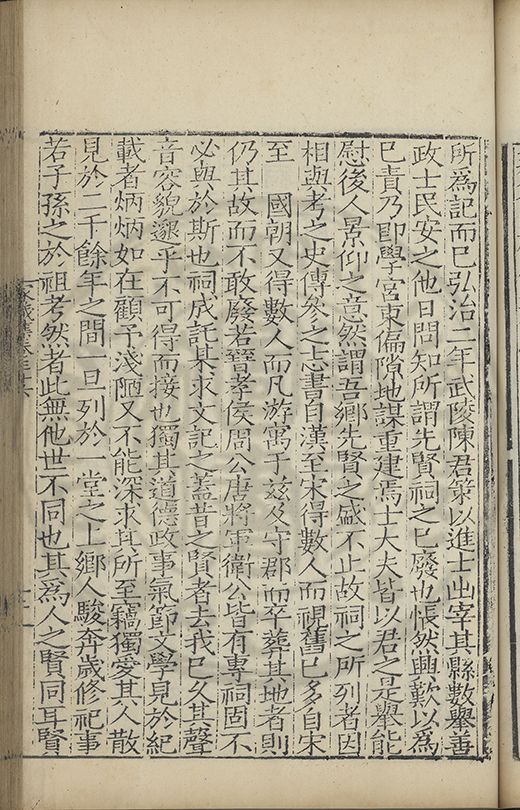 所爲記而巳弘治二年武陵陳君策以進士出宰其縣數舉善
政士民安之他日問知所謂先賢祠之巳廢也悵然興歎以爲
巳責乃即學宮東偏隙地謀重建焉士大夫皆以君之是舉能
慰後人景仰之意然謂吾鄉先賢之盛不止故祠之所列者因
相與考之史傳參之志書自漢至宋得數人而視舊巳多自宋
至 國朝又得數人而凡游寓于兹及守郡而卒葬其地者則
仍其故而不敢廢若晉孝侯周公唐將軍衛公皆有專祠固不
必與於斯也祠成託某求文記之蓋昔之賢者去我巳久其聲
音容貌邈乎不可得而接也獨其道德政事氣節文學見於紀
載者炳炳如在顧予淺陋又不能深求其所至竊獨愛其人散
見於二千餘年之間一旦列於一堂之上鄉人駿奔歲修祀事
若子孫之於祖考然者此無他世不同也其爲人之賢同耳賢